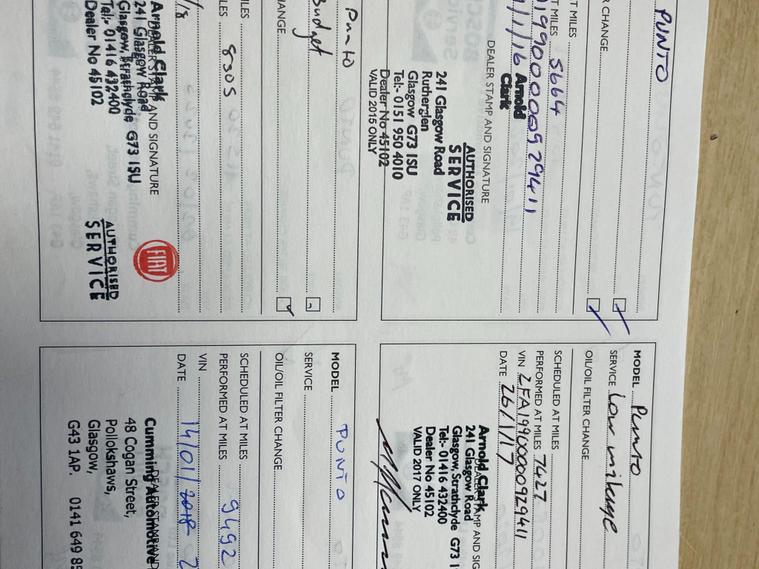 PUNTO
T MILES 5664
DEALER STAMP AND SIGNATURE
Arnold
Clark
AUTHORISED
SERVICE
241 Glasgow Road
Rutherglen
Glasgow G73 1SU
Tel:- 0151 950 4010
Dealer No 45102
VALID 2015 ONLY
MODEL Punto
SERVICE Low mileage
OIL/OIL FILTER CHANGE
SCHEDULED AT MILES
PERFORMED AT MILES 7427
VIN ZFA19900000929411
DATE 26/1/17
Arnold Clark
241 Glasgow Road
Glasgow, Strathclyde G73 1
Tel:- 01416 432400
Dealer No 45102
VALID 2017 ONLY
Punto
Budget
HANGE
MILES
LES 8305
DEALER STAMP AND SIGNATURE
Arnold Clark
241 Glasgow Road
Glasgow, Strathclyde G73 1SU
Tel:- 01416 432400
Dealer No 45102
FIAT
AUTHORISED
SERVICE
MODEL PUNTO
SERVICE
OIL/OIL FILTER CHANGE
SCHEDULED AT MILES
PERFORMED AT MILES 9492
VIN
DATE 14/01/2018
Cumming Automotive
48 Cogan Street,
Pollokshaws,
Glasgow,
G43 1AP. 0141 649 8